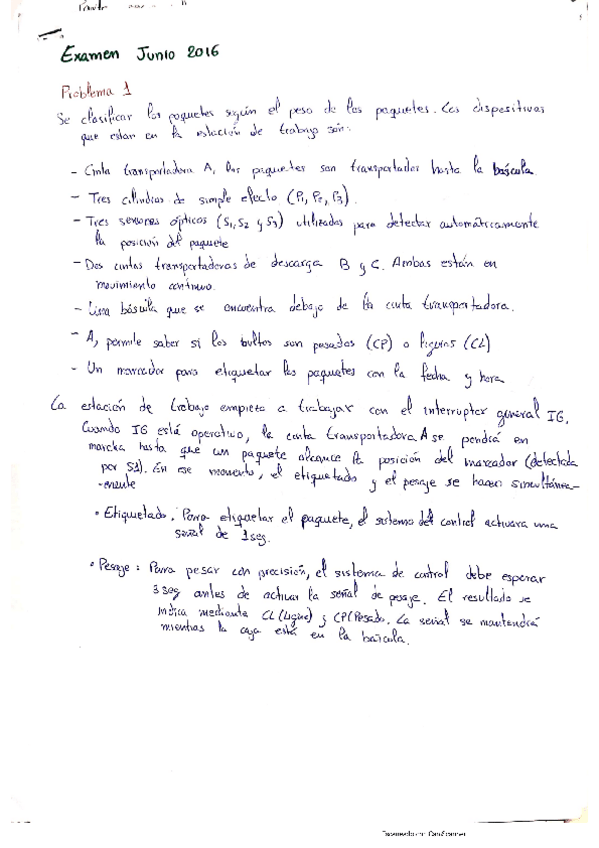 Examen Junio 2016
Problema 1
Se clasificar los paquetes según el peso de los paquetes. Los dispositivos
que estan en la estación de trabajo son:
- Cinta transportadora A, los paquetes son transportados hasta la báscula
- Tres cilindros de simple efecto (P1, P2, P3).
- Tres sensores ópticos (S1, S2 y S3) utilizados para detectar automáticamente
la posición del paquete
- Dos cintas transportadoras de descarga B y C. Ambas están en
movimiento continuo.
- Una báscula que se encuentra debajo de la cinta transportadora.
- A, permite saber si los bultos son pesados (CP) o ligeros (CL)
- Un marcador para etiquetar los paquetes con la fecha y hora
La estación de trabajo empieza a trabajar con el interruptor general IG.
Cuando IG está operativo, la cinta transportadora A se pondrá en
marcha hasta que un paquete alcance la posición del marcador (detectada
por S1). En ese momento, el etiquetado y el pesaje se hacen simultánea-
-mente
• Etiquetado. Para etiquetar el paquete, el sistema del control activara una
señal de 1seg.
• Pesaje: Para pesar con precisión, el sistema de control debe esperar
3seg antes de activar la señal de pesaje. El resultado se
indica mediante CL (Ligero) y CP (Pesado. La señal se mantendrá
mientras la caja está en la báscula.